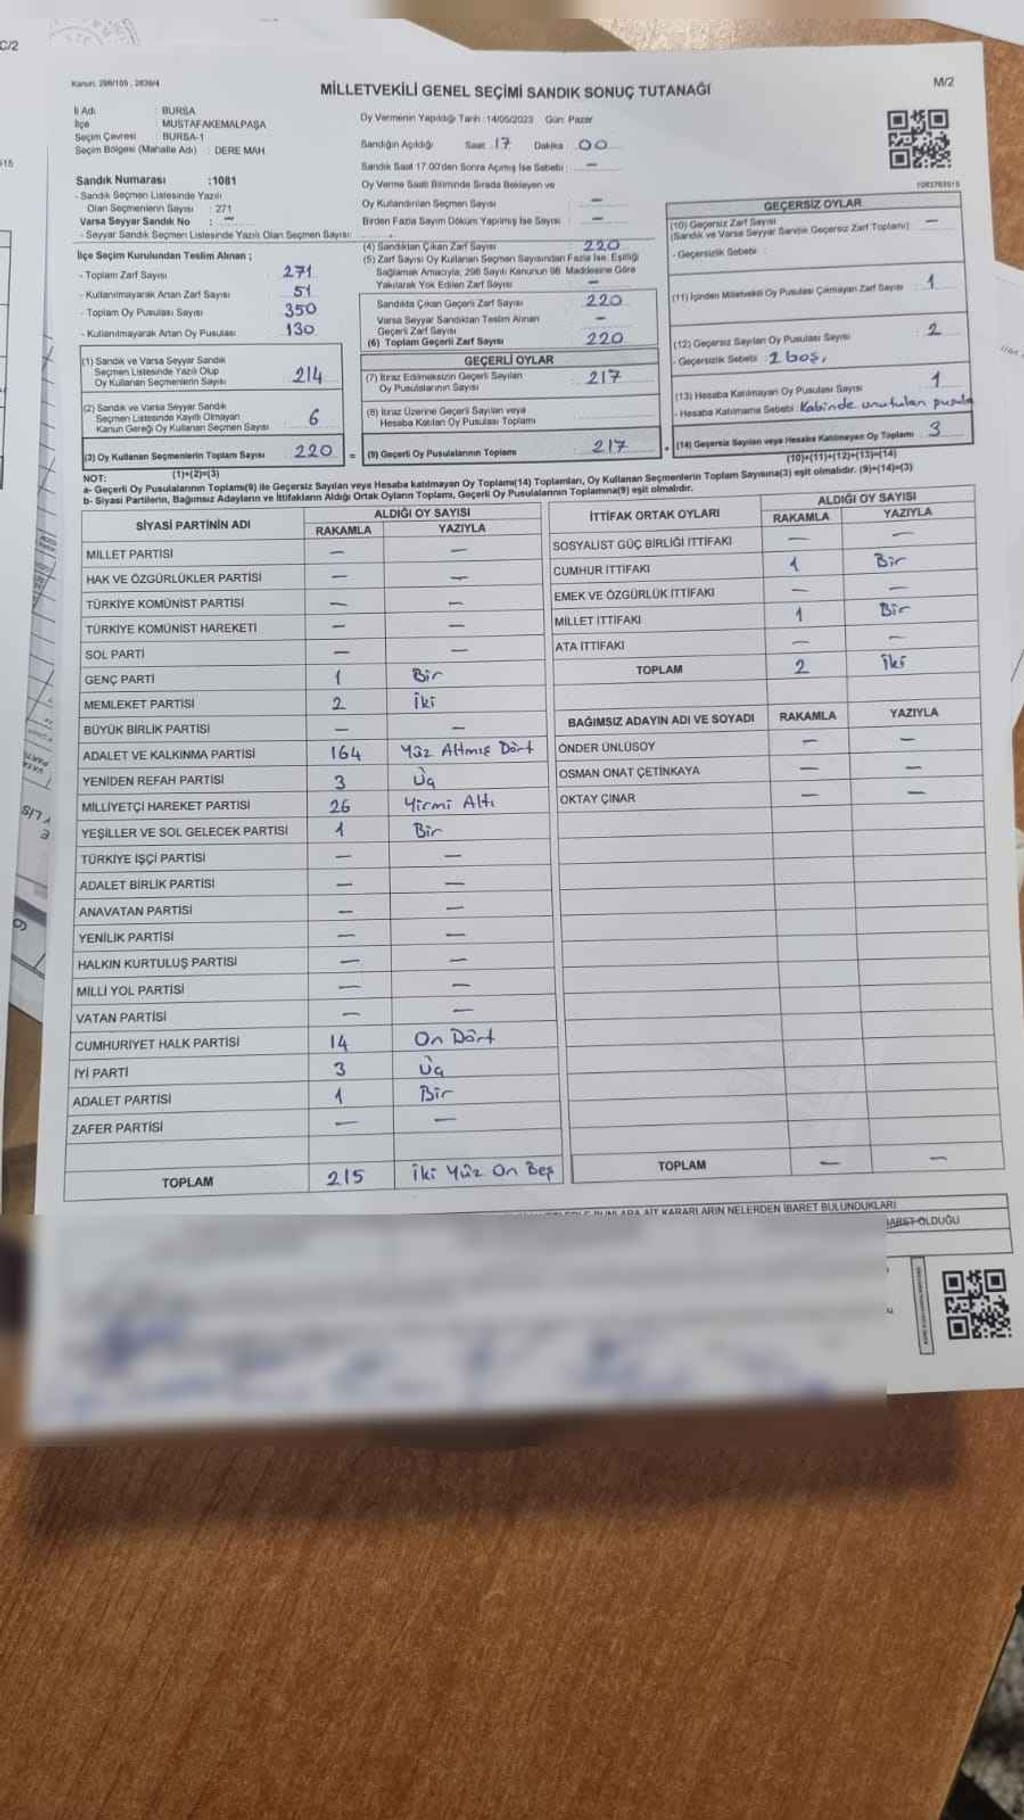 C/2
Kanun: 298/105 , 2839/4
MİLLETVEKİLİ GENEL SEÇİMİ SANDIK SONUÇ TUTANAĞI
M/2
İl Adı : BURSA
İlçe : MUSTAFAKEMALPAŞA
Seçim Çevresi : BURSA-1
Seçim Bölgesi (Mahalle Adı) : DERE MAH.
Oy Vermenin Yapıldığı Tarih :14/05/2023 Gün: Pazar
Sandığın Açıldığı Saat :17 Dakika 00
Sandık Saat 17.00'den Sonra Açılmış İse Sebebi : —
Oy Verme Saati Bitiminde Sırada Bekleyen ve
Oy Kullandırılan Seçmen Sayısı —
Birden Fazla Sayım Döküm Yapılmış İse Sayısı —
Sandık Numarası :1081
- Sandık Seçmen Listesinde Yazılı
Olan Seçmenlerin Sayısı : 271
Varsa Seyyar Sandık No : —
- Seyyar Sandık Seçmen Listesinde Yazılı Olan Seçmen Sayısı:
İlçe Seçim Kurulundan Teslim Alınan ;
- Toplam Zarf Sayısı 271
- Kullanılmayarak Artan Zarf Sayısı 51
- Toplam Oy Pusulası Sayısı 350
- Kullanılmayarak Artan Oy Pusulası 130
(1) Sandık ve Varsa Seyyar Sandık
Seçmen Listesinde Yazılı Olup
Oy Kullanan Seçmenlerin Sayısı 214
(2) Sandık ve Varsa Seyyar Sandık
Seçmen Listesinde Kayıtlı Olmayan
Kanun Gereği Oy Kullanan Seçmen Sayısı 6
(3) Oy Kullanan Seçmenlerin Toplam Sayısı 220
(1)+(2)=(3)
(4) Sandıktan Çıkan Zarf Sayısı 220
(5) Zarf Sayısı Oy Kullanan Seçmen Sayısından Fazla İse, Eşitliği
Sağlamak Amacıyla, 298 Sayılı Kanunun 98. Maddesine Göre
Yakılarak Yok Edilen Zarf Sayısı —
Sandıkta Çıkan Geçerli Zarf Sayısı 220
Varsa Seyyar Sandıktan Teslim Alınan
Geçerli Zarf Sayısı —
(6) Toplam Geçerli Zarf Sayısı 220
GEÇERLİ OYLAR
(7) İtiraz Edilmeksizin Geçerli Sayılan
Oy Pusulalarının Sayısı 217
(8) İtiraz Üzerine Geçerli Sayılan veya
Hesaba Katılan Oy Pusulası Toplamı
= (9) Geçerli Oy Pusulalarının Toplamı 217
GEÇERSİZ OYLAR
(10) Geçersiz Zarf Sayısı —
(Sandık ve Varsa Seyyar Sandık Geçersiz Zarf Toplamı)
- Geçersizlik Sebebi :
(11) İçinden Milletvekili Oy Pusulası Çıkmayan Zarf Sayısı : 1
(12) Geçersiz Sayılan Oy Pusulası Sayısı 2
- Geçersizlik Sebebi : 2 boş,
(13) Hesaba Katılmayan Oy Pusulası Sayısı 1
- Hesaba Katılmama Sebebi : Kabinde unutulan pusula
+ (14) Geçersiz Sayılan veya Hesaba Katılmayan Oy Toplamı 3
(10)+(11)+(12)+(13)=(14)
NOT:
a- Geçerli Oy Pusulalarının Toplamı(9) ile Geçersiz Sayılan veya Hesaba katılmayan Oy Toplamı(14) Toplamları, Oy Kullanan Seçmenlerin Toplam Sayısına(3) eşit olmalıdır. (9)+(14)=(3)
b- Siyasi Partilerin, Bağımsız Adayların ve İttifakların Aldığı Ortak Oyların Toplamı, Geçerli Oy Pusulalarının Toplamına(9) eşit olmalıdır.
SİYASİ PARTİNİN ADI ALDIĞI OY SAYISI
RAKAMLA YAZIYLA
MİLLET PARTİSİ — —
HAK VE ÖZGÜRLÜKLER PARTİSİ — —
TÜRKİYE KOMÜNİST PARTİSİ — —
TÜRKİYE KOMÜNİST HAREKETİ — —
SOL PARTİ — —
GENÇ PARTİ 1 Bir
MEMLEKET PARTİSİ 2 İki
BÜYÜK BİRLİK PARTİSİ — —
ADALET VE KALKINMA PARTİSİ 164 Yüz Altmış Dört
YENİDEN REFAH PARTİSİ 3 Üç
MİLLİYETÇİ HAREKET PARTİSİ 26 Yirmi Altı
YEŞİLLER VE SOL GELECEK PARTİSİ 1 Bir
TÜRKİYE İŞÇİ PARTİSİ — —
ADALET BİRLİK PARTİSİ — —
ANAVATAN PARTİSİ — —
YENİLİK PARTİSİ — —
HALKIN KURTULUŞ PARTİSİ — —
MİLLİ YOL PARTİSİ — —
VATAN PARTİSİ — —
CUMHURİYET HALK PARTİSİ 14 On Dört
İYİ PARTİ 3 Üç
ADALET PARTİSİ 1 Bir
ZAFER PARTİSİ — —
TOPLAM 215 İki Yüz On Beş
İTTİFAK ORTAK OYLARI ALDIĞI OY SAYISI
RAKAMLA YAZIYLA
SOSYALİST GÜÇ BİRLİĞİ İTTİFAKI — —
CUMHUR İTTİFAKI 1 Bir
EMEK VE ÖZGÜRLÜK İTTİFAKI — —
MİLLET İTTİFAKI 1 Bir
ATA İTTİFAKI — —
TOPLAM 2 İki
BAĞIMSIZ ADAYIN ADI VE SOYADI RAKAMLA YAZIYLA
ÖNDER ÜNLÜSOY — —
OSMAN ONAT ÇETİNKAYA — —
OKTAY ÇINAR — —
TOPLAM — —
BUNLARA AİT KARARLARIN NELERDEN İBARET BULUNDUKLARI
İBARET OLDUĞU